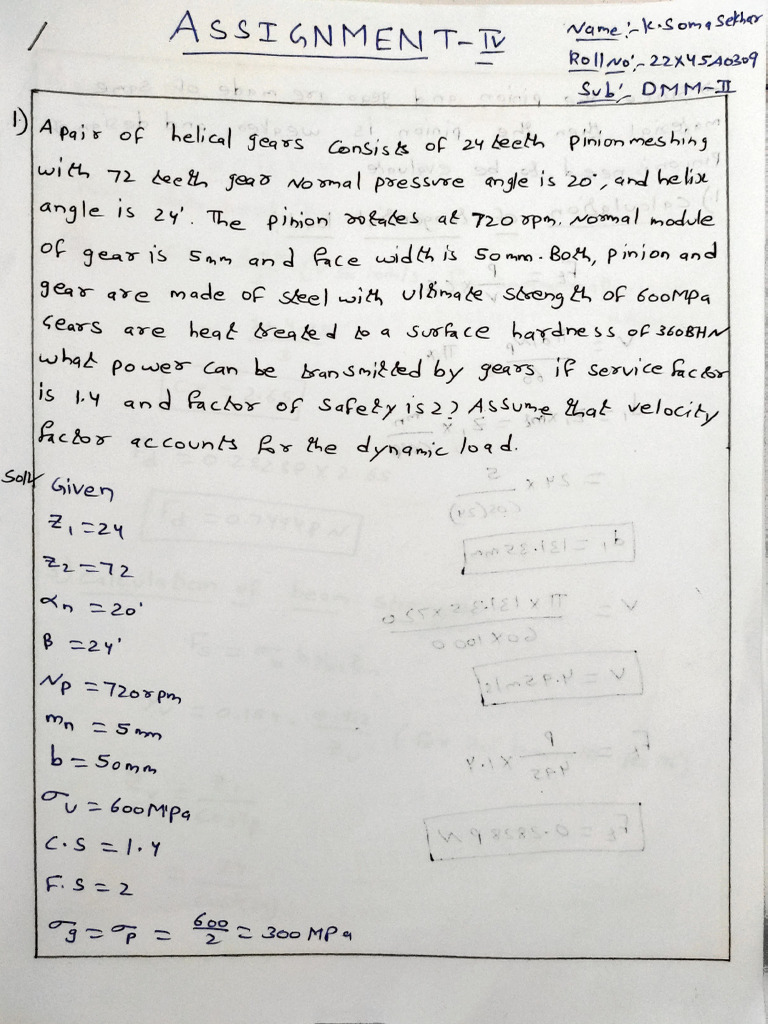 ASSIGNMENT-IV
Name:- K. Soma Sekhar
Roll No:- 22X45A0309
Sub:- DMM-II
1) A pair of helical gears consists of 24 teeth pinion meshing
with 72 teeth gear Normal pressure angle is 20°, and helix
angle is 24°. The pinion rotates at 720 rpm. Normal module
of gear is 5mm and face width is 50mm. Both, pinion and
gear are made of steel with ultimate strength of 600MPa
Gears are heat treated to a surface hardness of 360BHN
what power can be transmitted by gears if service factor
is 1.4 and factor of safety is 2? Assume that velocity
factor accounts for the dynamic load.
Soln Given
Z₁ = 24
Z₂ = 72
αn = 20°
β = 24°
Np = 720 rpm
mn = 5mm
b = 50mm
σu = 600MPa
C.S = 1.4
F.S = 2
σg = σp = 600/2 = 300 MPa